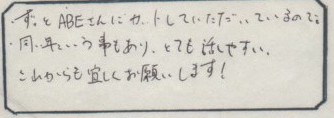 ずっとABEさんにカットしていただいているので。
同い年という事もあり、とても話しやすい。
これからも宜しくお願いします!